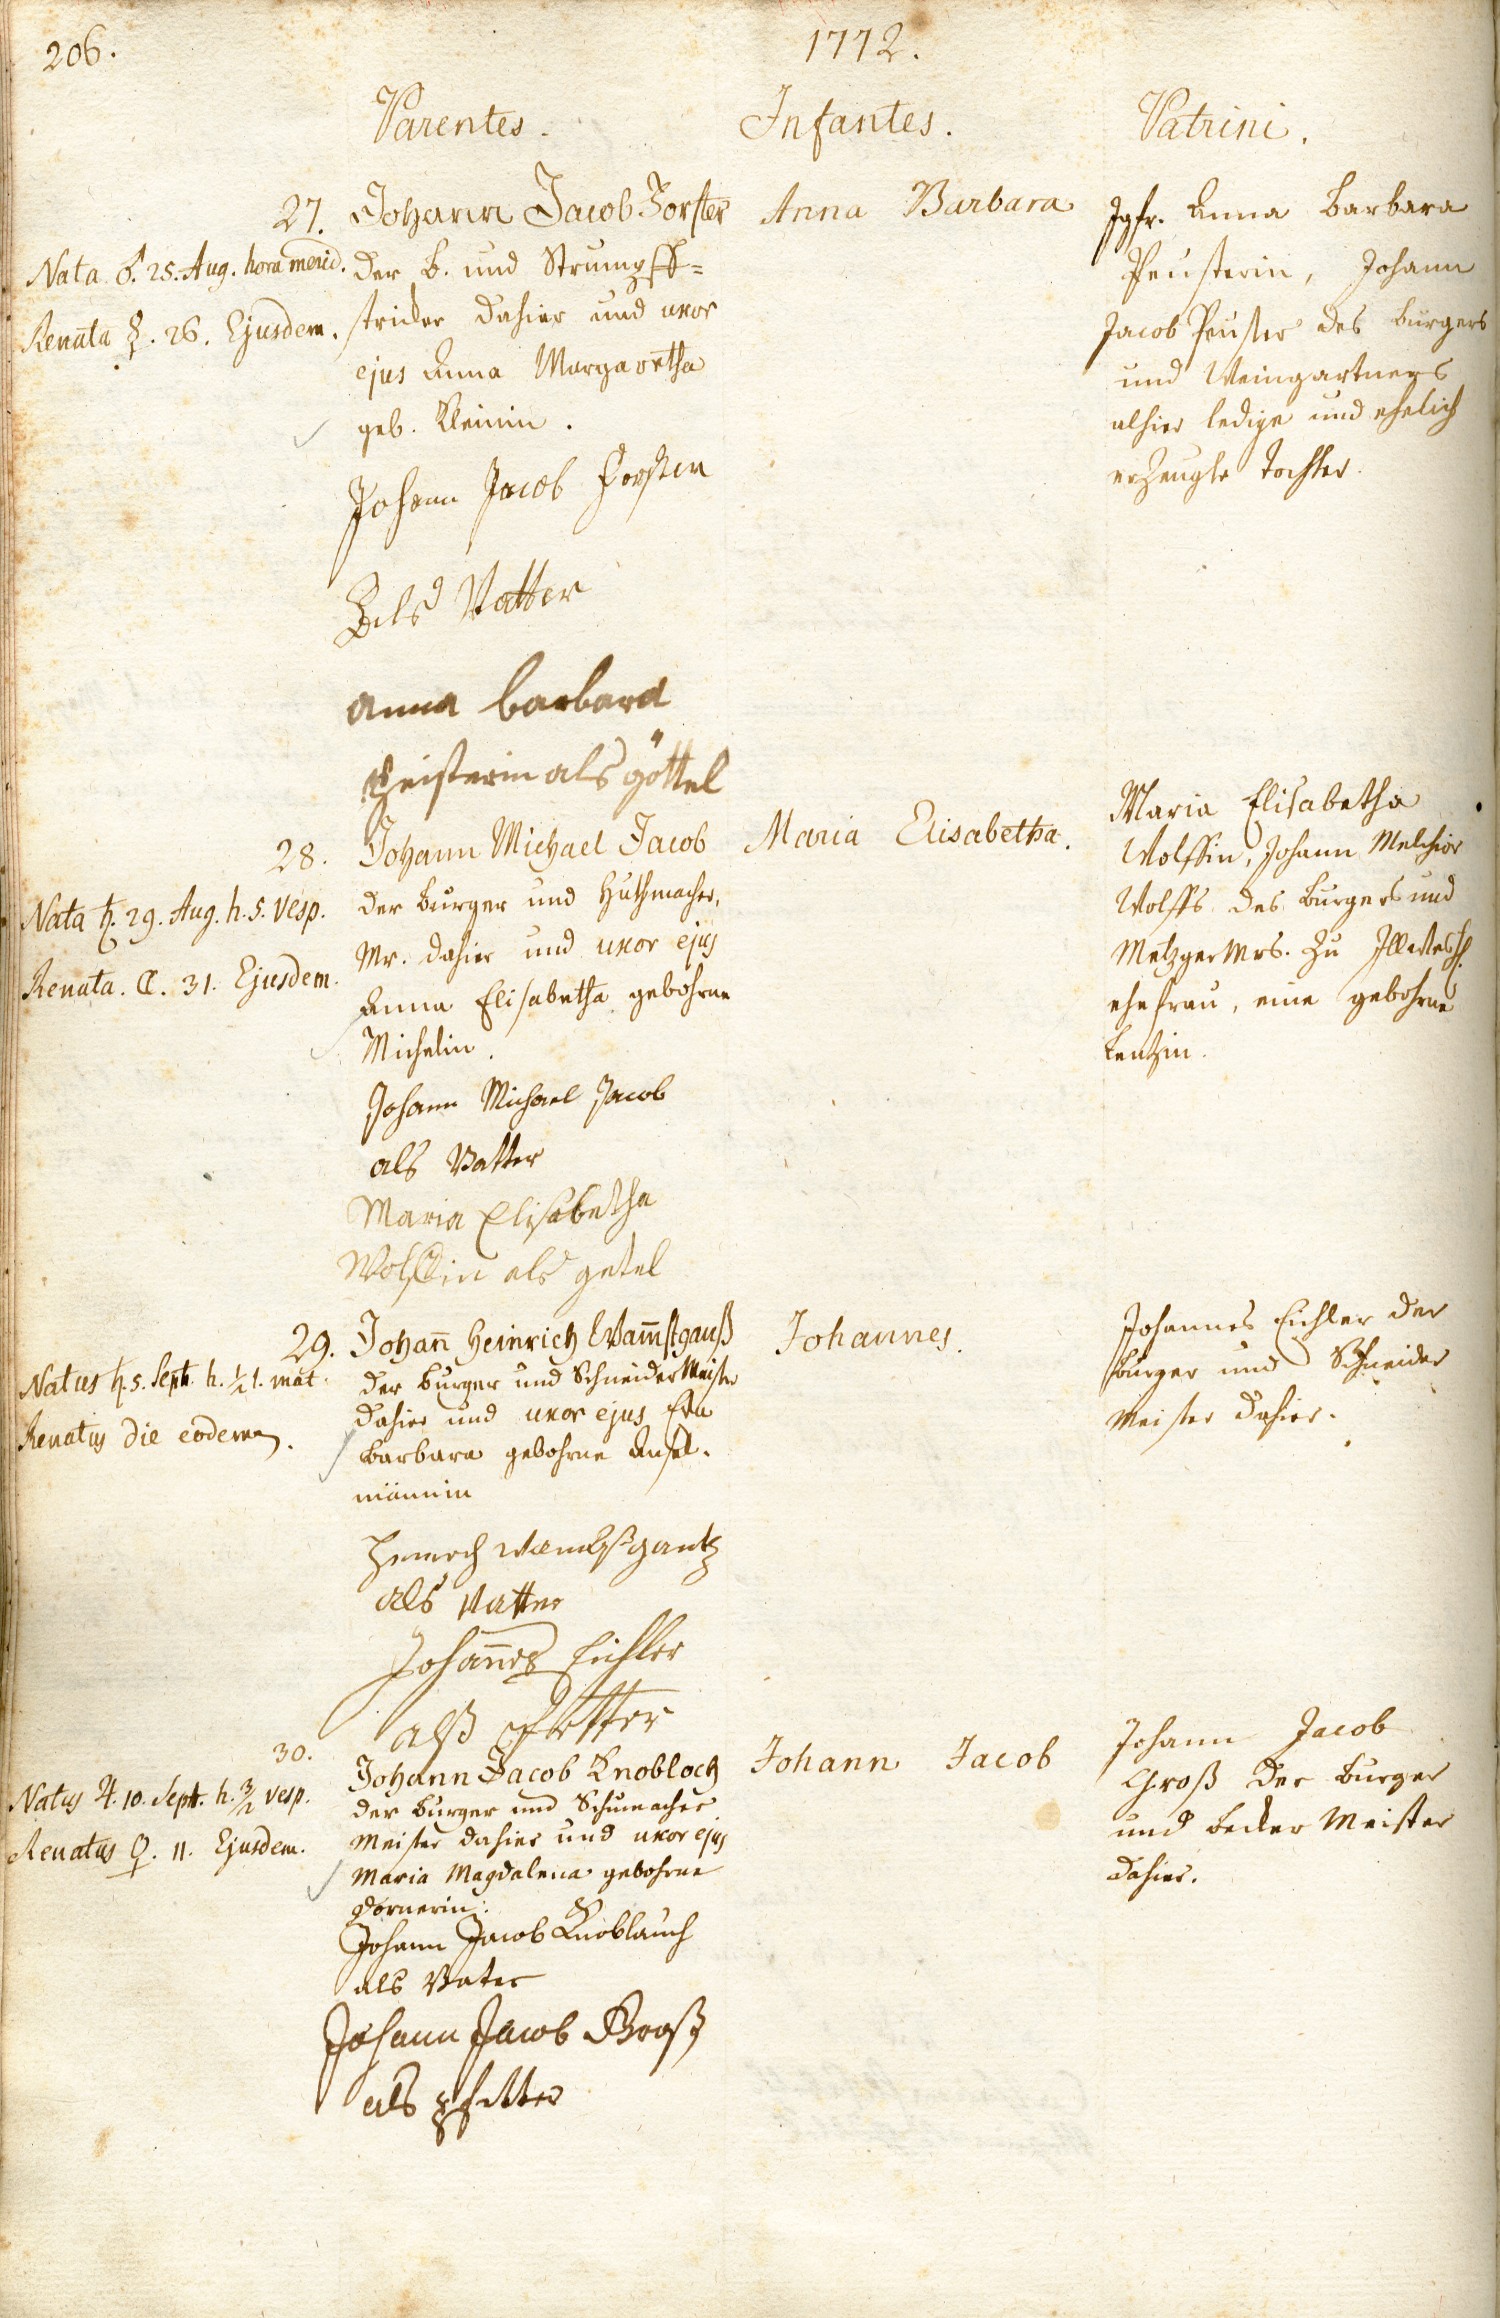 206.
1772.
Parentes.
Infantes.
Patrini.
27.
Nata ♂. 25. Aug. hora merid.
Renata ☿. 26. Ejusdem.
Johann Jacob Forster
der b. und Strumpff-
stricker dahier und uxor
ejus Anna Margaretha
geb. Kleinin.
Johann Jacob Forster
Als Vatter
anna barbara
Peisterin als göttel
Anna Barbara
Jgfr. Anna Barbara
Peusterin, Johann
Jacob Peuster des burgers
und Weingartners
alhier ledige und ehelich
erzeugte Tochter.
28.
Nata ♄. 29. Aug. h. 5. vesp.
Renata. ☾. 31. Ejusdem.
Johann Michael Jacob
der burger und Huthmacher,
Mr. dahier und uxor ejus
Anna Elisabetha gebohrne
Michelin.
Johann Michael Jacob
als Vatter
Maria Elisabetha
Wolffin als getel
Maria Elisabetha.
Maria Elisabetha
Wolffin, Johann Melchior
Wolffs des burgers und
Metzger Mrs. zu
ehefrau, eine gebohrne
Lentzin.
29.
Natus ♄. 5. Sept. h. ½1. mat.
Renatus die eodem.
Johañ Heinrich Wam̃stganß
der burger und Schneider Meister
dahier und uxor ejus Eva
barbara gebohrne Ansel-
männin
Henrich wambstgantz
als Vatter
Johañes Eichler
alß Petter
Johannes.
Johannes Eichler der
burger und Schneider
Meister dahier.
30.
Natus ♃. 10. Sept. h. 3/2 vesp.
Renatus ♀. 11. Ejusdem.
Johann Jacob Knobloch
der burger und Schumacher
Meister dahier und uxor ejus
Maria Magdalena gebohrne
Dornerin.
Johann Jacob Knoblauch
als Vater
Johann Jacob Groß
als Pfetter
Johann Jacob
Johann Jacob
Groß der burger
und becker Meister
dahier.